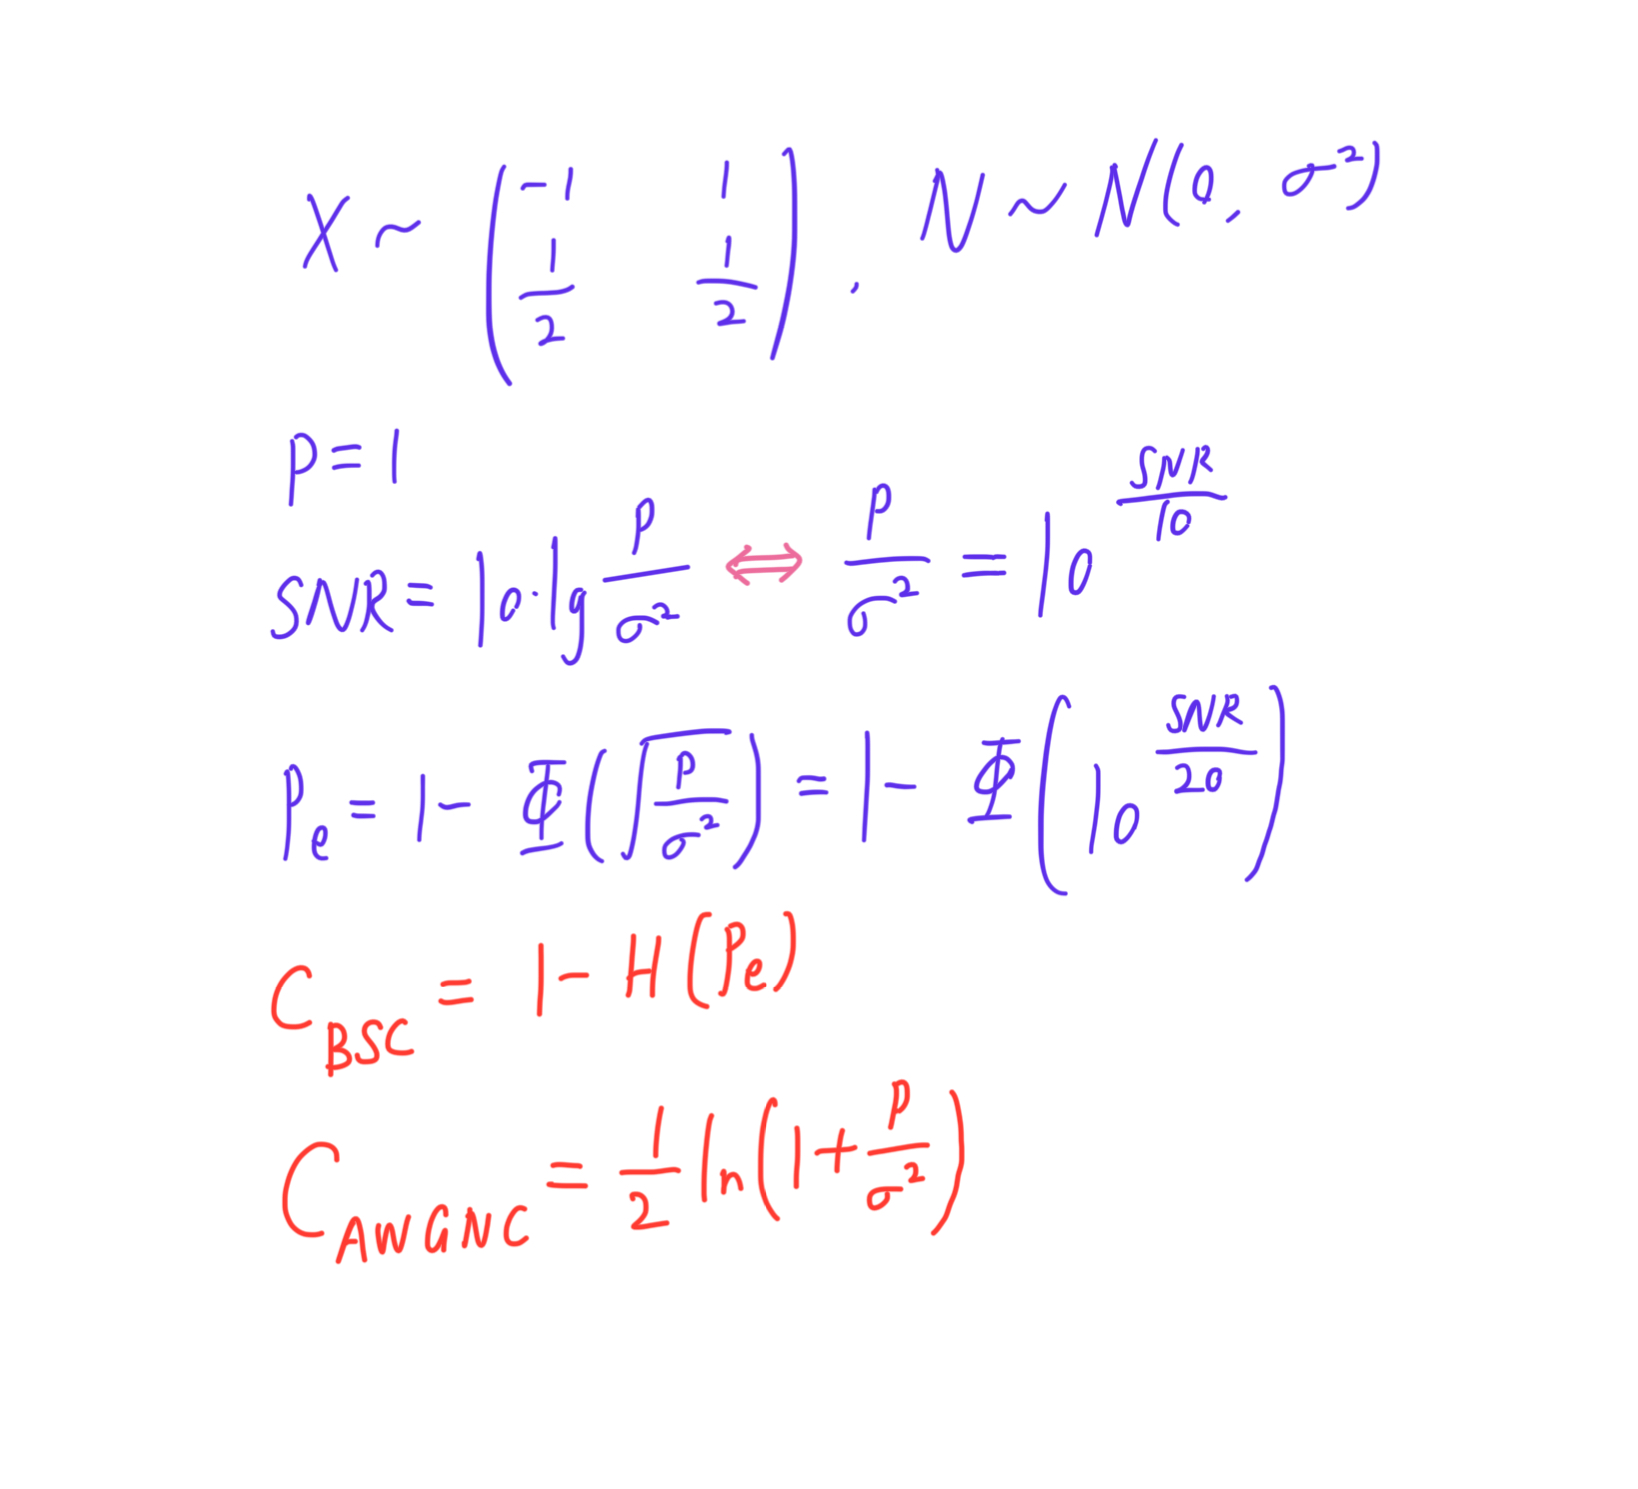 X ~ ( -1 1 ; 1/2 1/2 ), N ~ N(0, σ²)
P = 1
SNR = 10·lg P/σ² ⇔ P/σ² = 10^(SNR/10)
Pe = 1 - Φ(√(P/σ²)) = 1 - Φ(10^(SNR/20))
C_BSC = 1 - H(Pe)
C_AWGNC = 1/2 ln(1 + P/σ²)